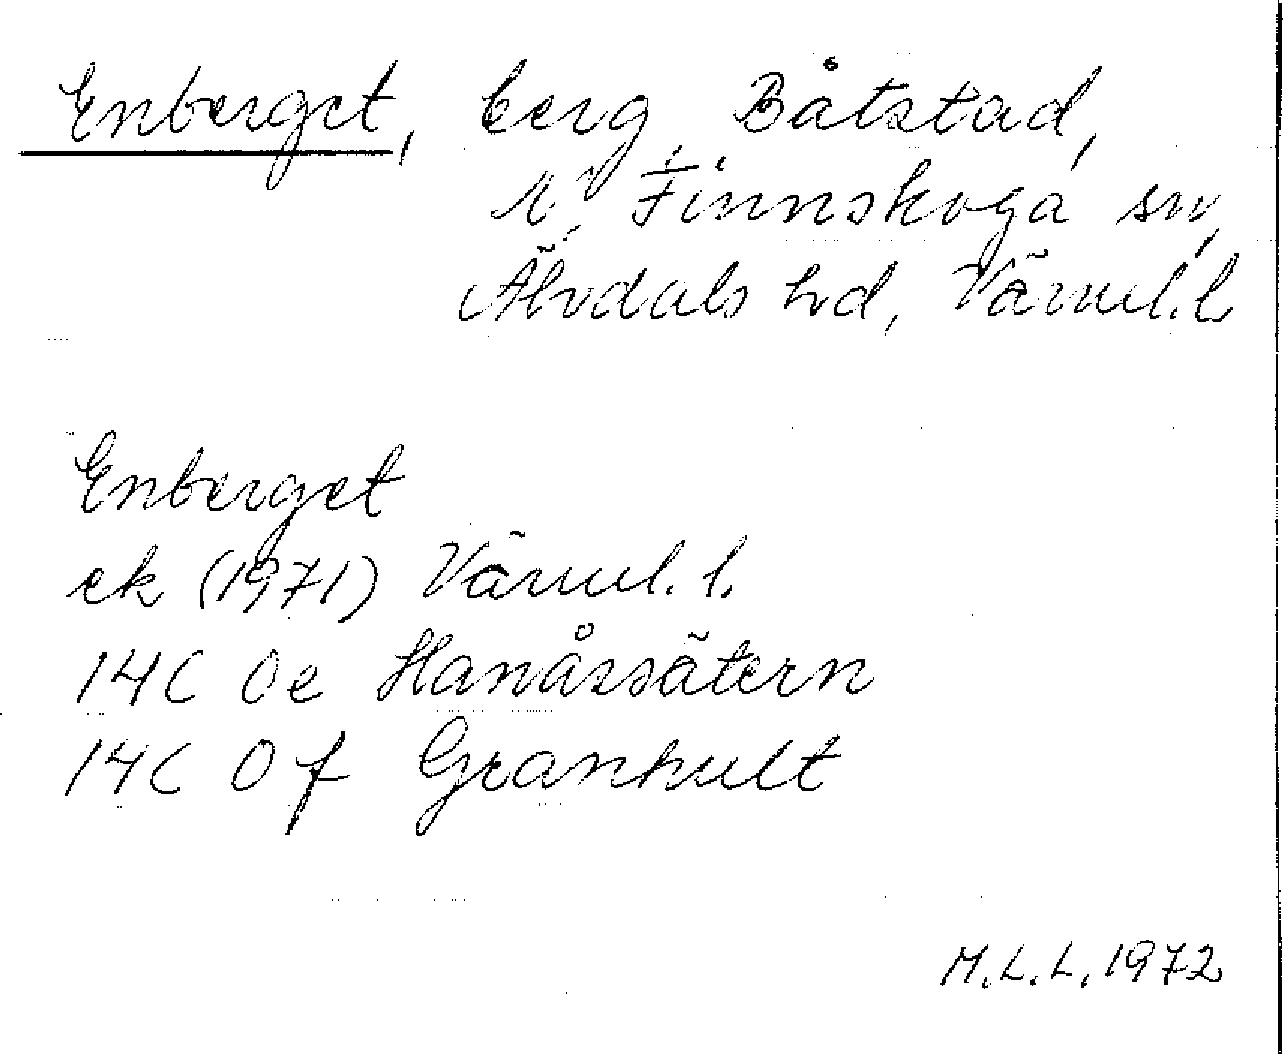 Enberget, berg, Båtstad,
N. Finnskoga sn,
Älvdals hd, Värml. l.
Enberget
ek (1971) Värml. l.
14C 0e Hanåssätern
14C 0f Granhult
M.L.L. 1972